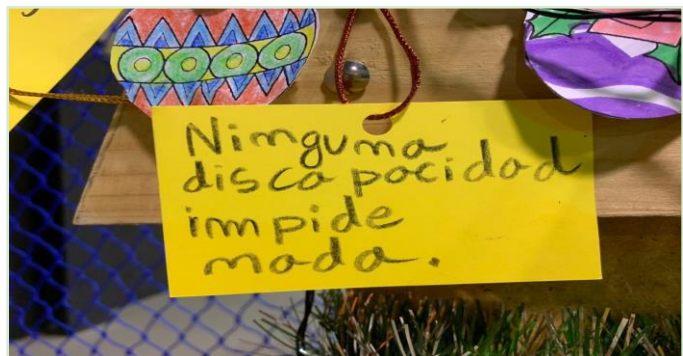 Ninguna
discapacidad
impide
nada.